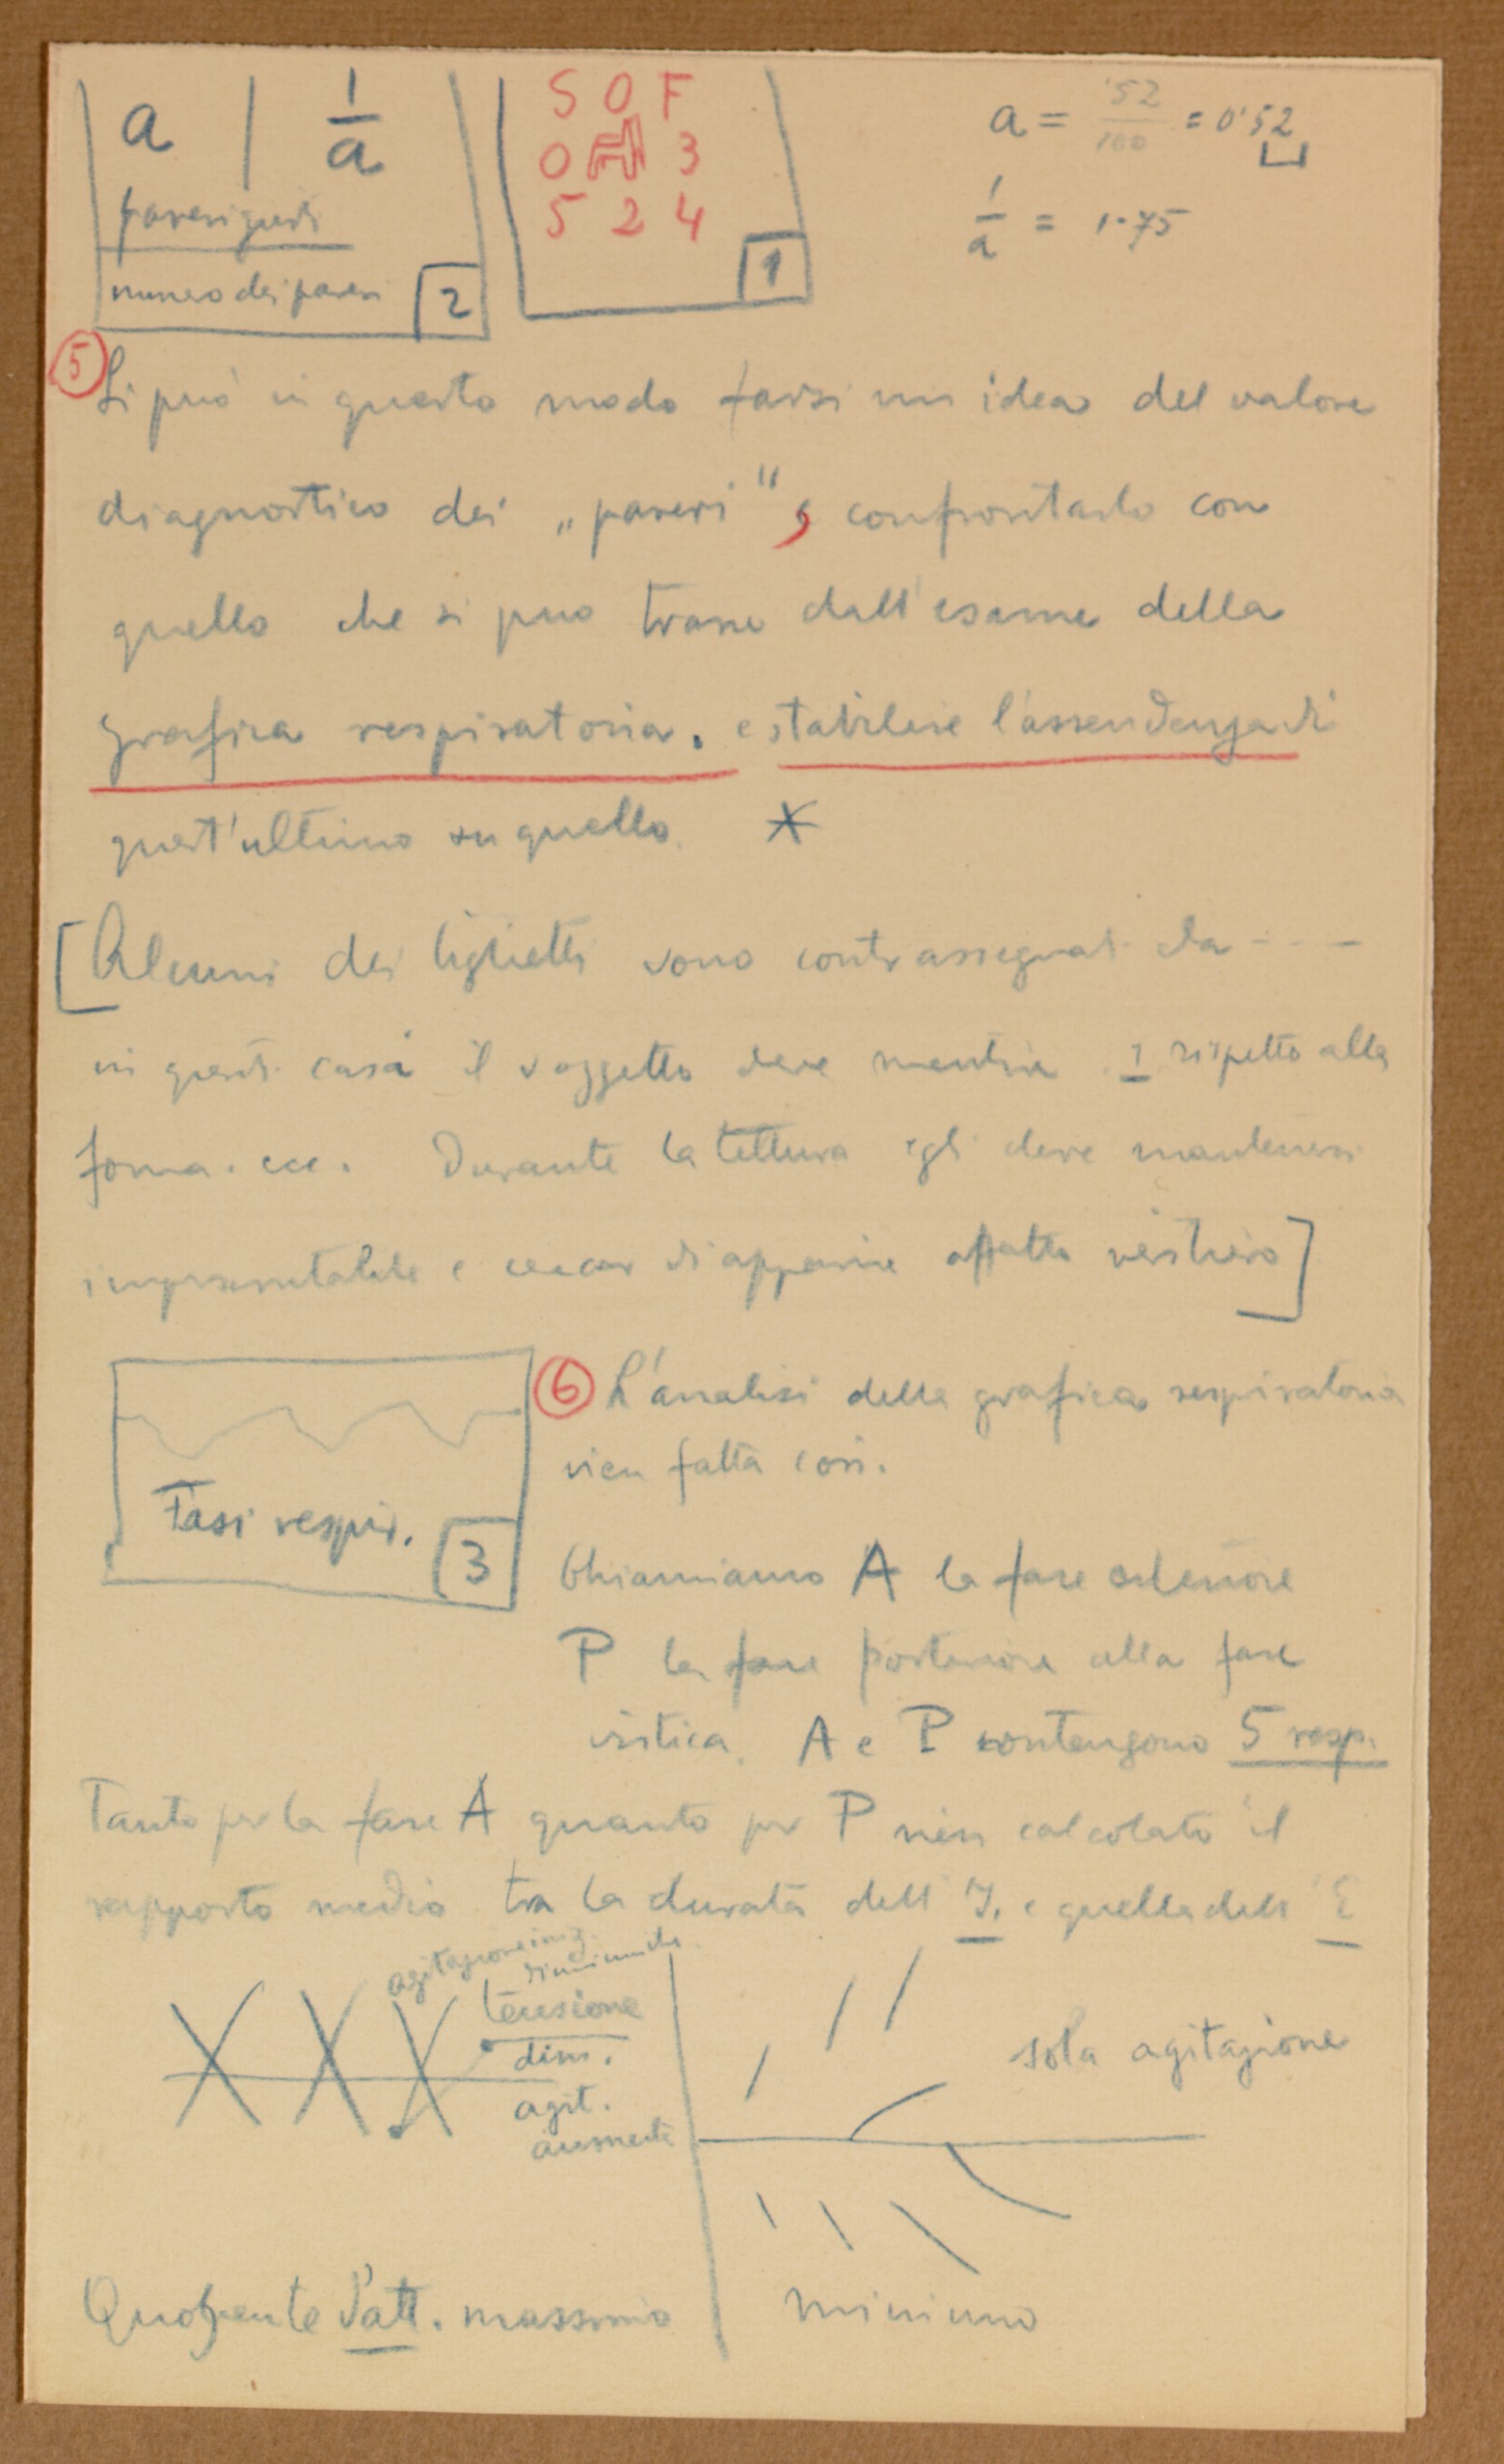 a | 1/a
pareri giusti
numero dei pareri
2
S O F
O H 3
5 2 4
1
a = 52/100 = 0'52
1/a = 1.75
5 Si può in questo modo farsi un idea del valore
diagnostico dei „pareri", confrontarlo con
quello che si può trarre dall'esame della
grafica respiratoria. e stabilire l'assendenza di
quest'ultimo su quello. X
[Alcuni dei biglietti sono contrassegnati da - - -
in questi casi il soggetto deve mentire 1 rispetto alla
forma. ecc. Durante la lettura egli deve mantenersi
e di apparire affatto veritiero]
Fasi respir.
3
6 L'analisi della grafica respiratoria
vien fatta così.
Chiamiamo A la fase anteriore
P la fase posteriore alla fase
critica. A e P contengono 5 resp.
Tanto per la fase A quanto per P vien calcolato il
rapporto medio tra la durata dell' I. e quella dell' E
agitazione
diminuita
tensione
dim.
agit.
aumenta
sola agitazione
Quoziente d'att. massimo
minimo